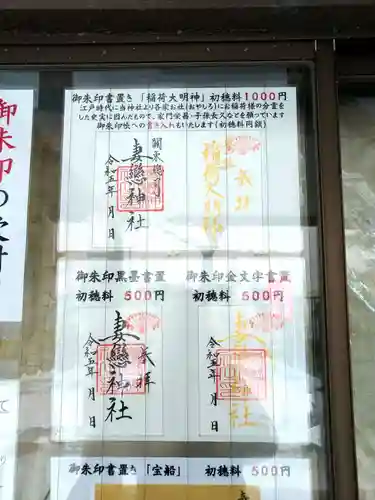 御朱印書置き「稲荷大明神」初穂料1000円
江戸時代に当神社より各家お社(おやしろ)にお稲荷様の分霊を
した史実に因んだもので、家門栄昌・子孫長久などを願っています
御朱印帳への書き入れもいたします(初穂料同額)
奉拝
稲荷大明神
關東総司
妻戀神社
令和五年 月 日
御朱印黒墨書置
初穂料 500円
奉拝
妻戀神社
令和五年 月 日
御朱印金文字書置
初穂料 500円
妻戀神社
令和五年 月 日
御朱印書置き「宝船」 初穂料 500円
御朱印の受付